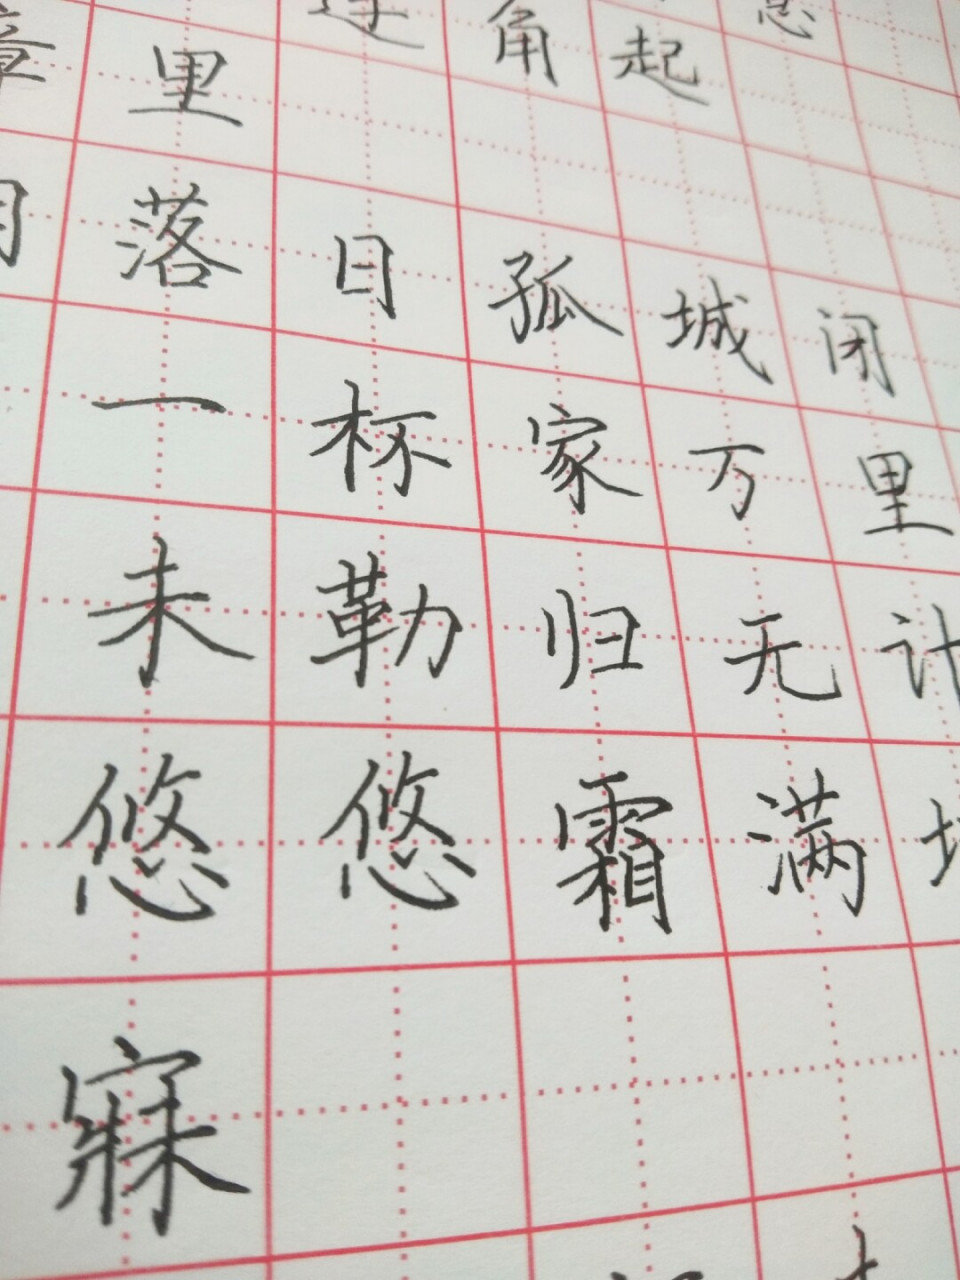 章 里 连 角 起
落 日 孤 城 闭
一 杯 家 万 里
未 勒 归 无 计
悠 悠 霜 满
寐